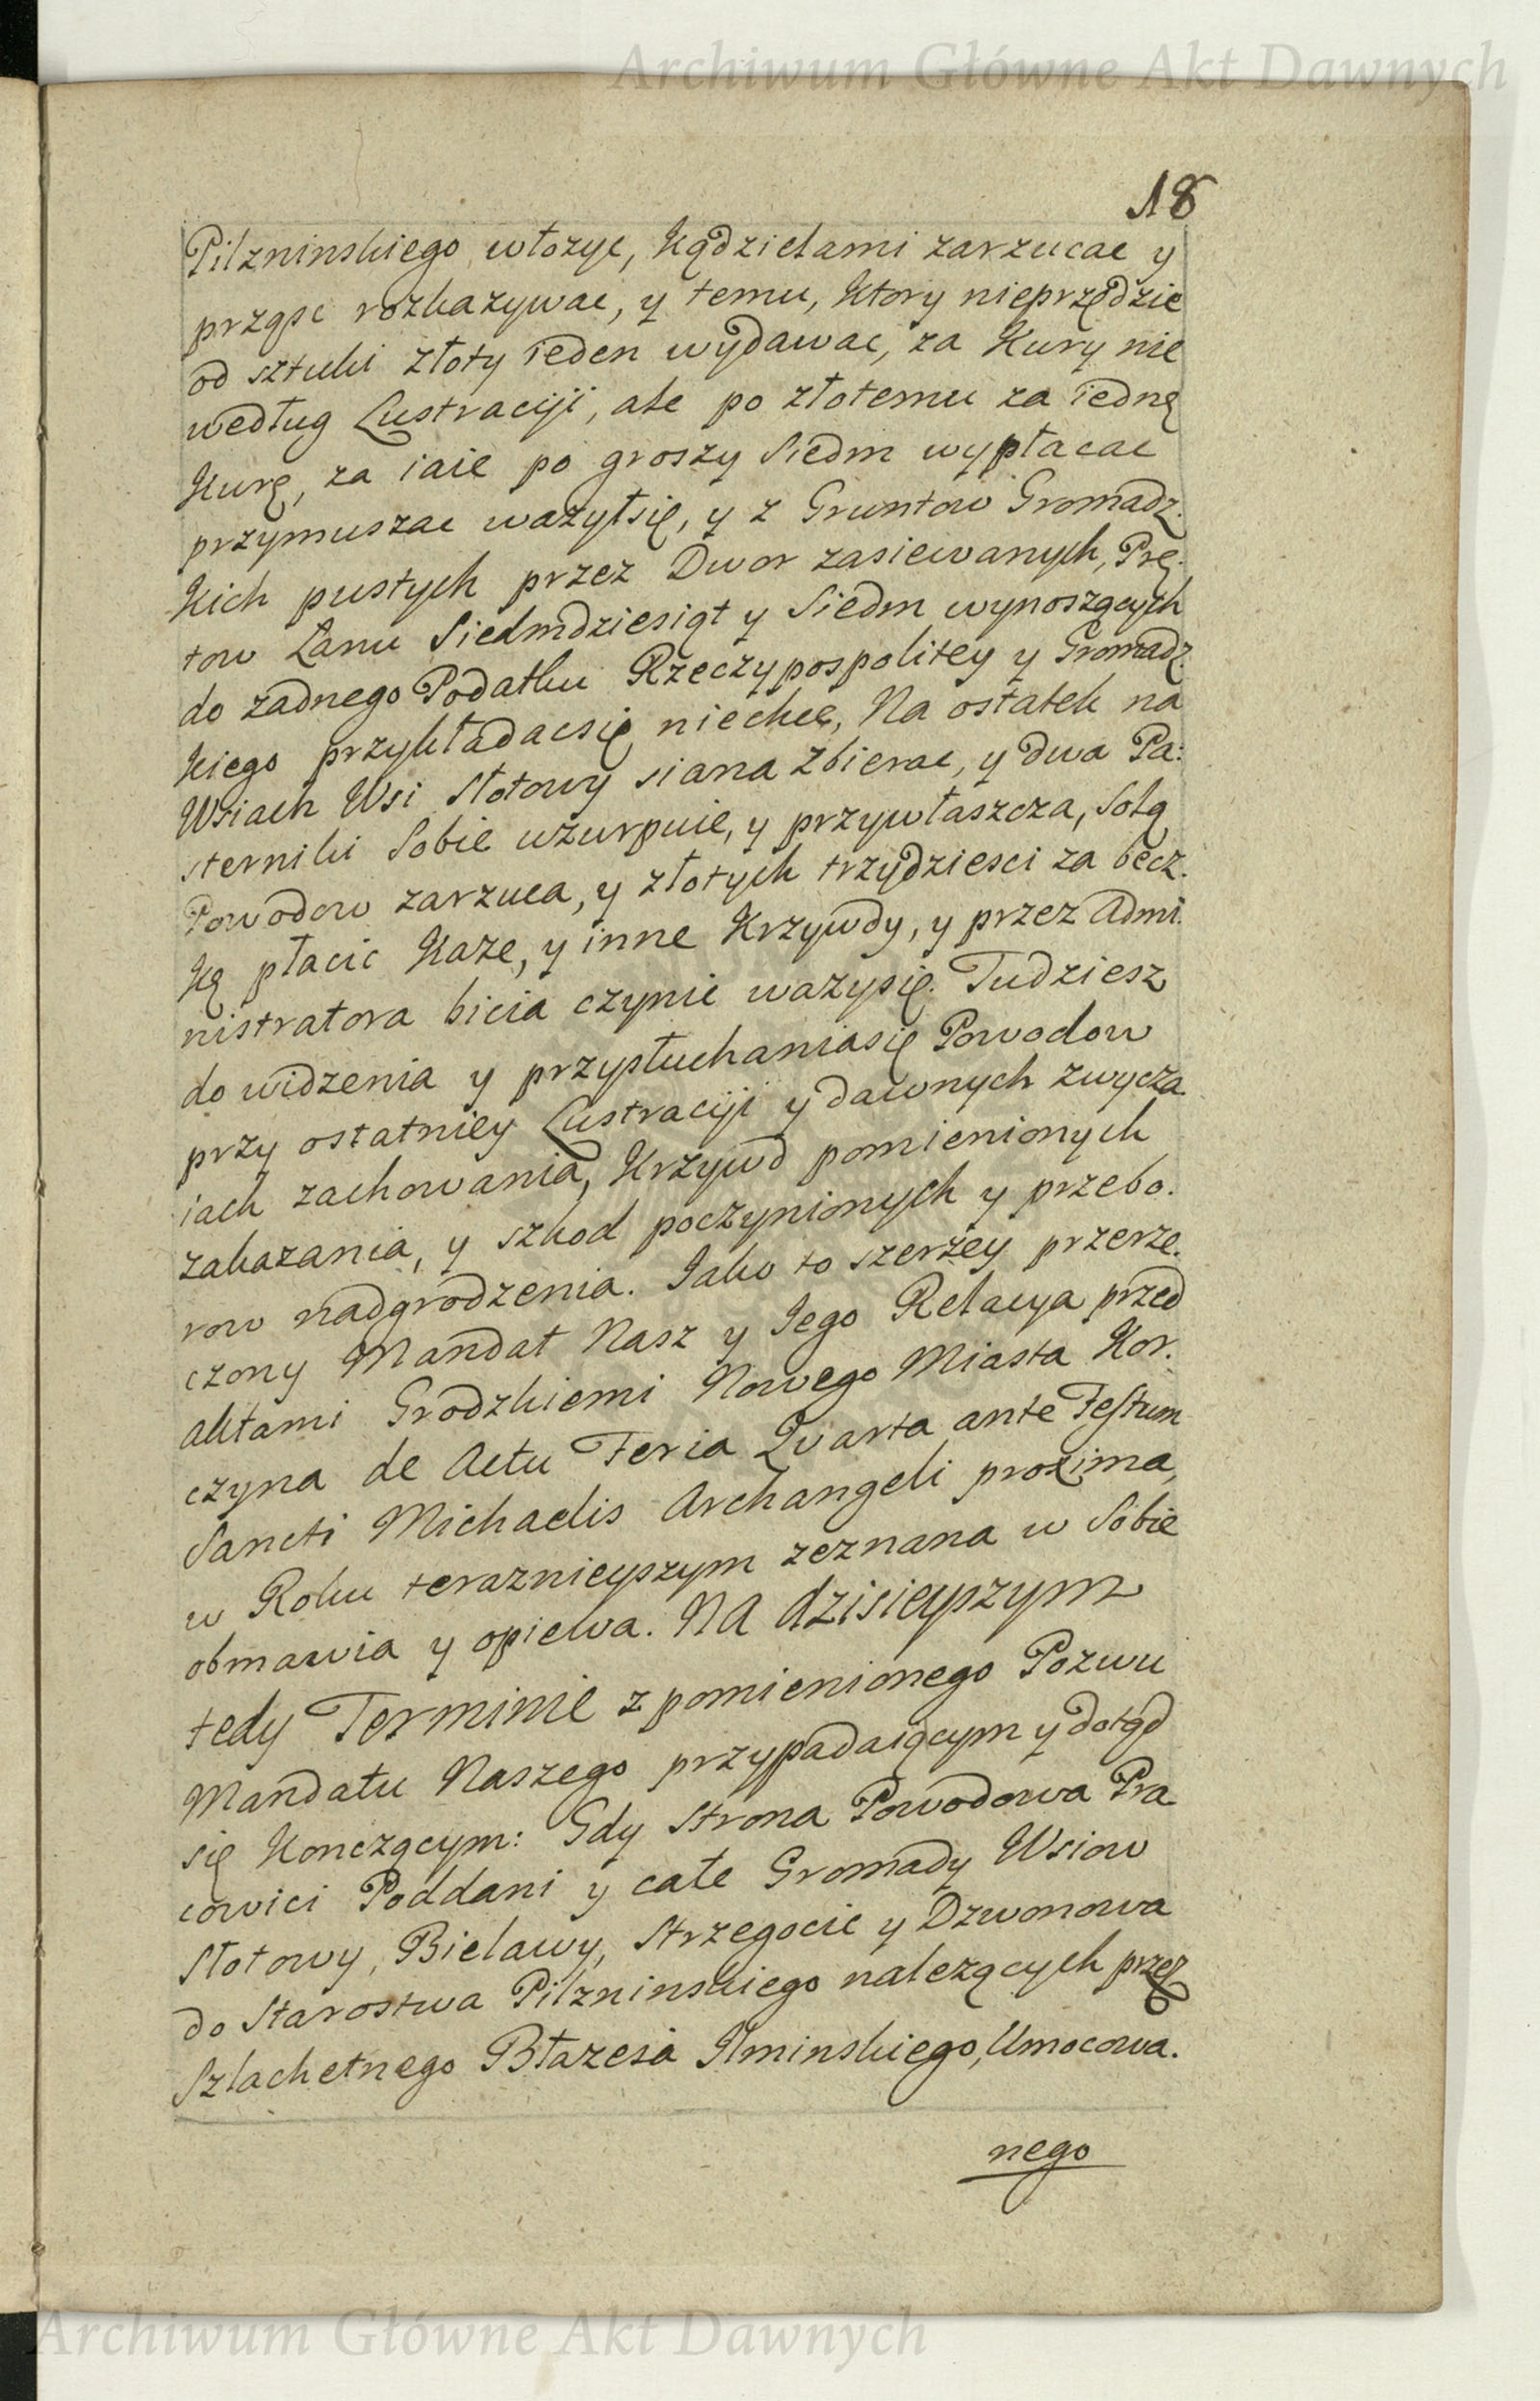 Archiwum Główne Akt Dawnych
18
Pilzninskiego włozyc, Kądzielami zarzucac y
prząsc rozkazywac, y temu, Ktory nieprzędzie
od sztuki złoty ieden wydawac, za Kury nie
według Lustracyi, ale po złotemu za iednę
Kurę, za iaie po groszy Siedm wypłacac
przymuszac wazyłsię, y z Gruntow Gromadz.
Kich pustych przez Dwor zasiewanych, Prę.
tow Łanu Siedmdziesiąt y Siedm wynoszących
do zadnego Podatku Rzeczypospolitey y Gromadz.
Kiego przykładacsię niechce, Na ostatek na
Wsiach Wsi Słotowy siana zbierac, y dwa Pa:
sterniki Sobie uzurpuie, y przywłaszcza, Solą
Powodow zarzuca, y złotych trzydziesci za becz.
Ką płacic Kaze, y inne Krzywdy, y przez Admi.
nistratora bicia czynic wazysię. Tudziesz
do widzenia y przysłuchaniasię Powodow
przy ostatniey Lustracyi y dawnych zwycza.
iach zachowania, Krzywd pomienionych
zakazania, y szkod poczynionych y przebo.
row nadgrodzenia. Jako to szerzey przerze.
czony Mandat Nasz y Jego Relacya przed
Aktami Grodzkiemi Nowego Miasta Kor.
czyna de Actu Feria Quarta ante Festum
Sancti Michaelis Archangeli proxima,
w Roku teraznieyszym zeznana w Sobie
obmawia y opiewa. NA dzisieyszym
tedy Terminie z pomienionego Pozwu
Mandatu Naszego przypadaiącym y dotąd
się Konczącym: Gdy Strona Powodowa Pra
cowici Poddani y całe Gromady Wsiow
Słotowy, Bielawy, Strzegocic y Dzwonowa
do Starostwa Pilzninskiego nalezących przez
Szlachetnego Błazeia Ilminskiego, Umocowa.
nego
Archiwum Główne Akt Dawnych